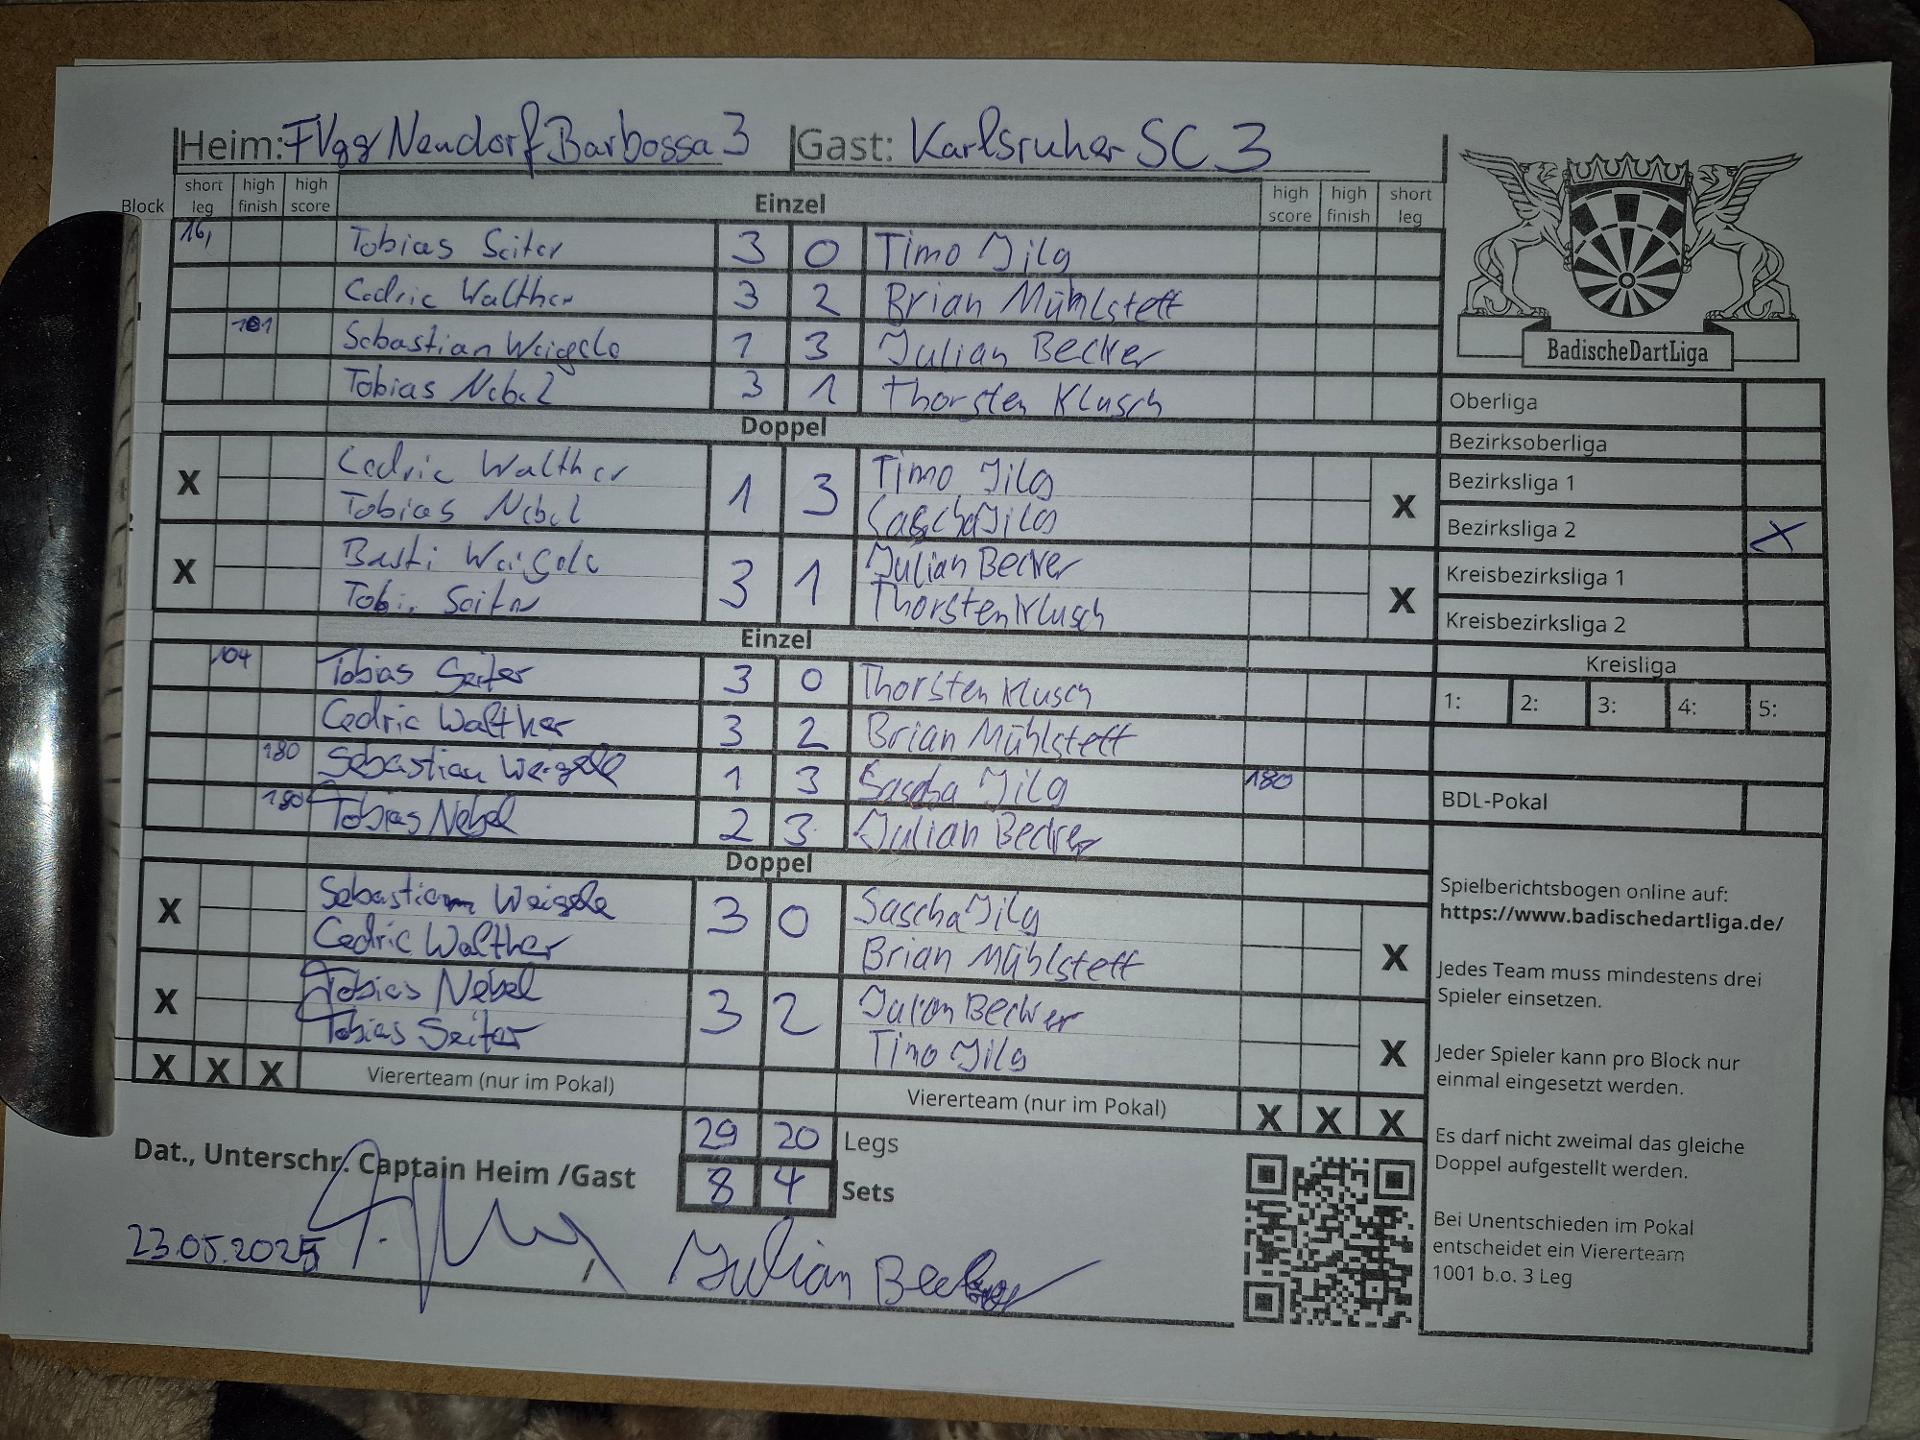 Heim: FVgg Neudorf Barbossa 3 Gast: Karlsruher SC 3
Block short leg high finish high score Einzel high score high finish short leg
16, Tobias Seiter 3 0 Timo Jilg
Cedric Walther 3 2 Brian Mühlstett
101 Sebastian Weigele 1 3 Julian Becker
Tobias Nebel 3 1 Thorsten Klusch
Doppel
X Cedric Walther 1 3 Timo Jilg X
Tobias Nebel Sascha Jilg
X Basti Weigele 3 1 Julian Becker X
Tobi Seiter Thorsten Klusch
Einzel
104 Tobias Seiter 3 0 Thorsten Klusch
Cedric Walther 3 2 Brian Mühlstett
180 Sebastian Weigele 1 3 Sascha Jilg 180
180 Tobias Nebel 2 3 Julian Becker
Doppel
X Sebastian Weigele 3 0 Sascha Jilg X
Cedric Walther Brian Mühlstett
X Tobias Nebel 3 2 Julian Becker X
Tobias Seiter Timo Jilg
X X X Viererteam (nur im Pokal) Viererteam (nur im Pokal) X X X
29 20 Legs
8 4 Sets
Dat., Unterschr. Captain Heim /Gast
23.05.2025 Julian Becker
BadischeDartLiga
Oberliga
Bezirksoberliga
Bezirksliga 1
Bezirksliga 2 X
Kreisbezirksliga 1
Kreisbezirksliga 2
Kreisliga
1: 2: 3: 4: 5:
BDL-Pokal
Spielberichtsbogen online auf:
https://www.badischedartliga.de/
Jedes Team muss mindestens drei
Spieler einsetzen.
Jeder Spieler kann pro Block nur
einmal eingesetzt werden.
Es darf nicht zweimal das gleiche
Doppel aufgestellt werden.
Bei Unentschieden im Pokal
entscheidet ein Viererteam
1001 b.o. 3 Leg